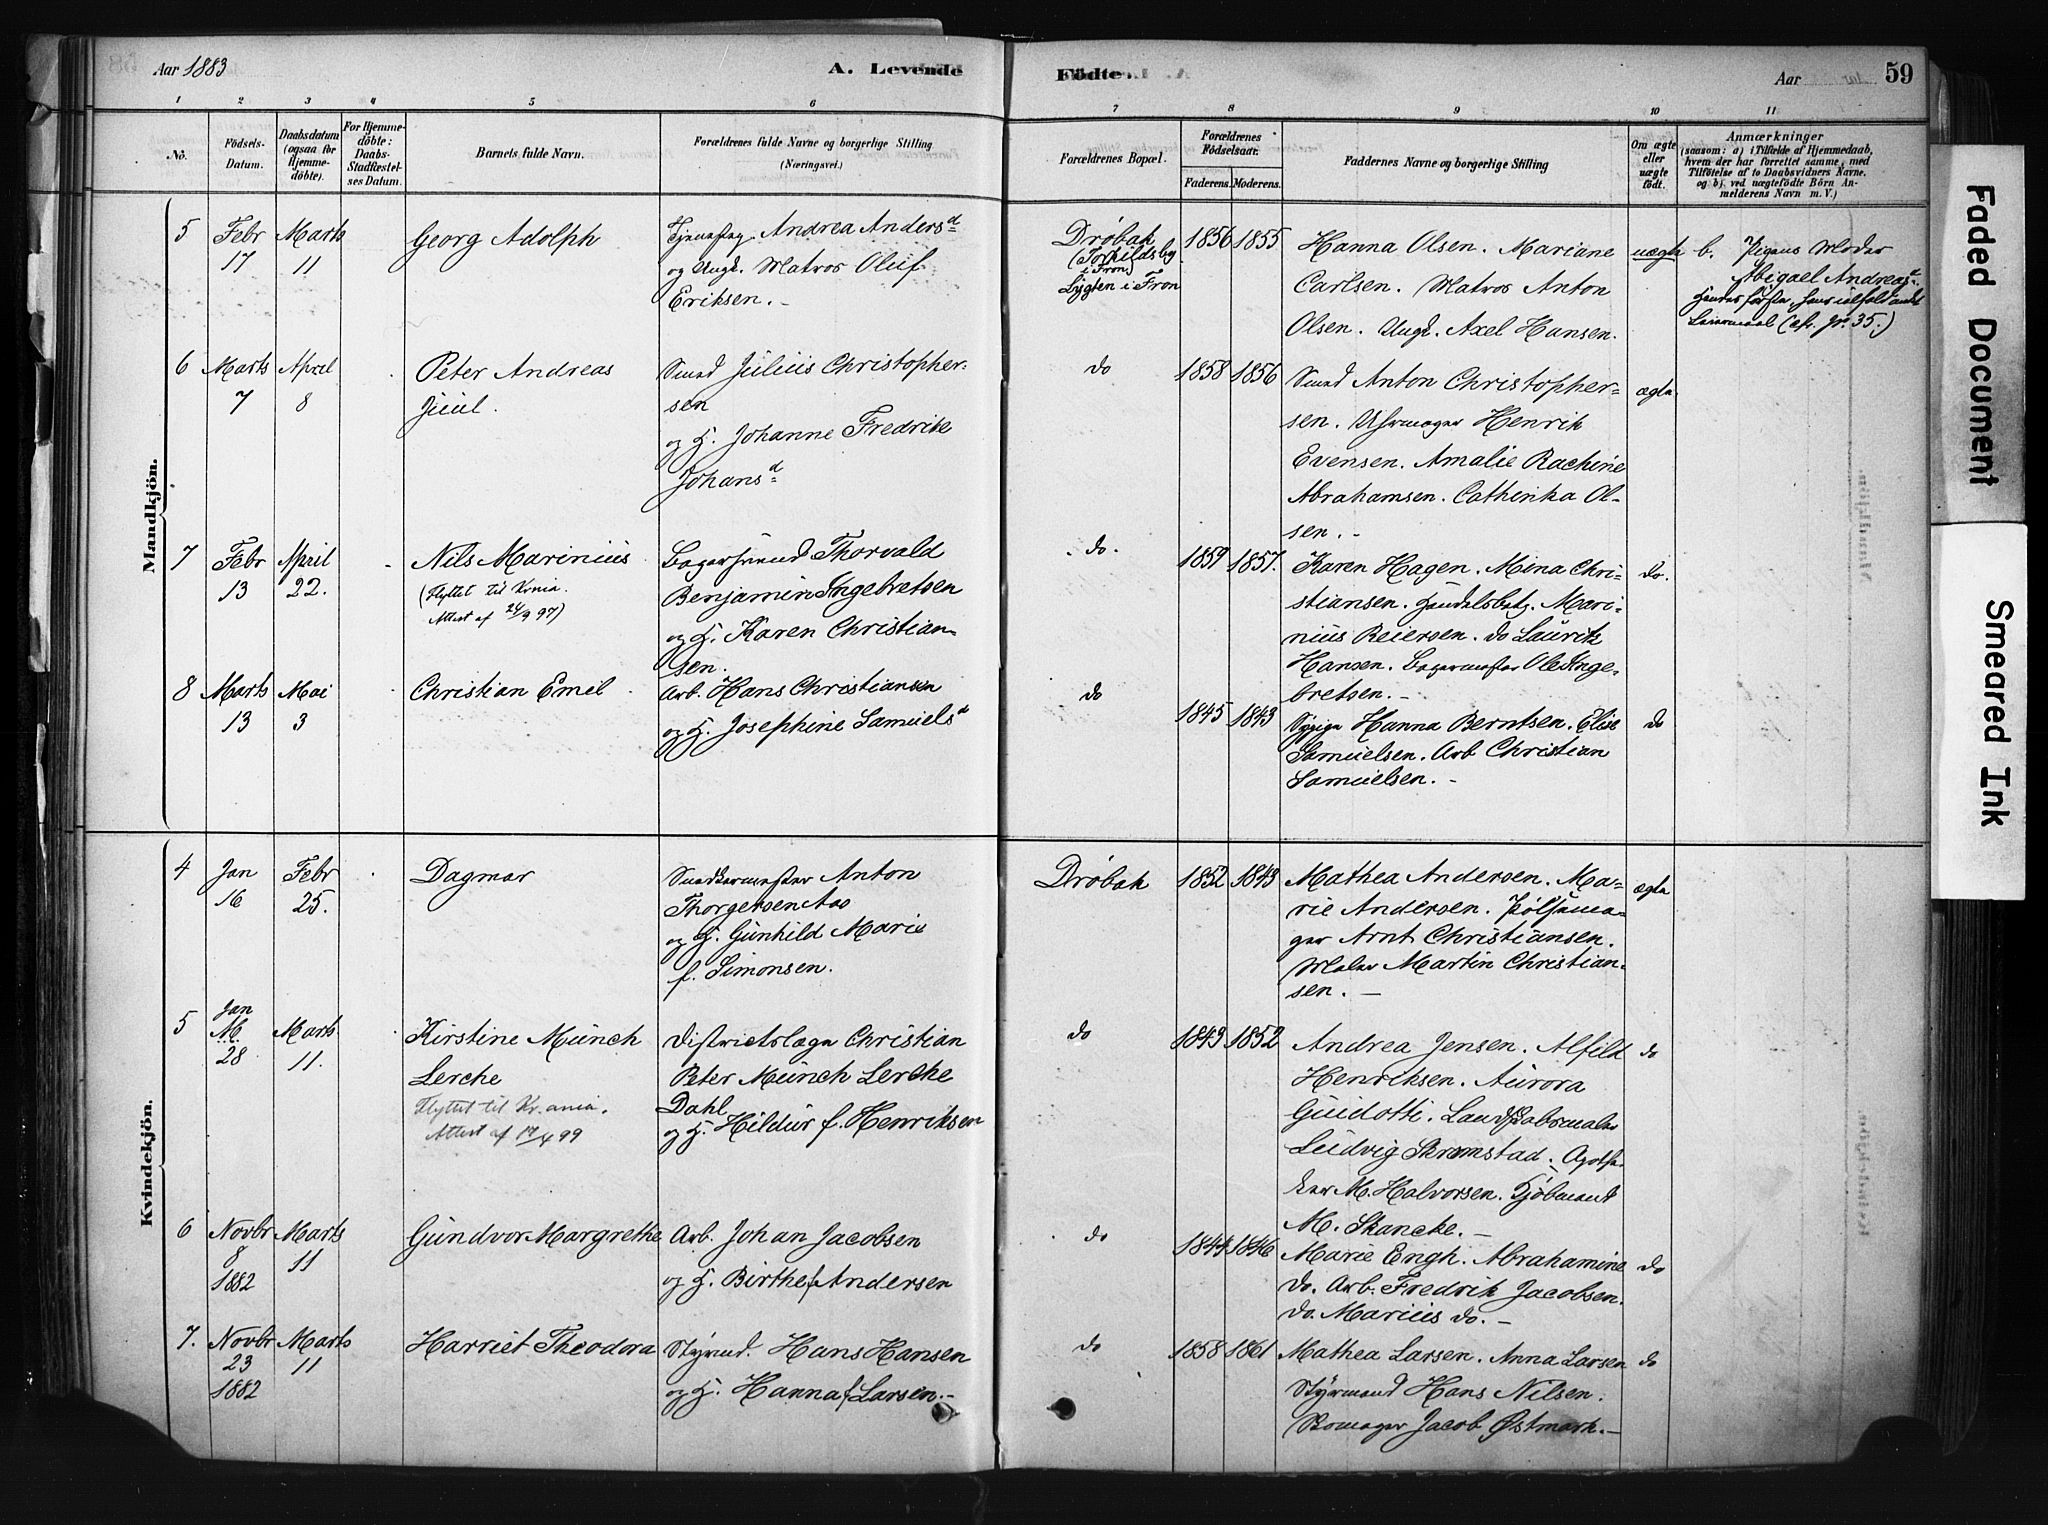 Aar 1883
A. Levende
Födte.
Aar
59
1 2 3 4 5 6 7 8 9 10 11
No.
Födsels-
Datum.
Daabsdatum
(ogsaa for
Hjemme-
döbte).
For Hjemme-
döbte:
Daabs-
Stadfæstel-
ses Datum.
Barnets fulde Navn.
Forældrenes fulde Navne og borgerlige Stilling
(Næringsvei.)
Forældrenes Bopæl.
Forældrenes
Födselsaar.
Faderens. Moderens.
Faddernes Navne og borgerlige Stilling
Om ægte
eller
uægte
födt.
Anmærkninger
(saasom: a) i Tilfælde af Hjemmedaab,
hvem der har forrettet samme, med
Tilföielse af to Daabsvidners Navne.
og b) ved uægtefödte Börn An-
melderens Navn m. V.)
Mandkjön.
5
Febr
17
Marts
11
Georg Adolph
Andrea Andersd
og Ungk. Matros Oluf
Eriksen. -
Drøbak
(Torkildsby
i Fron)
Lygten i Fron
1856 1855
Hanna Olsen. Mariane
Carlsen. Matros Anton
Olsen. Ungk. Axel Hansen.
uægte
b. Pigens Moder
Abigael Andreasd
6
Marts
7
April
8
Peter Andreas
Juul.
Smed Julius Christopher-
sen
og H. Johanne Fredrike
Johansd
do
1858 1856
Smed Anton Christopher-
sen. Uhrmager Henrik
Evensen. Amalie Rachine
Abrahamsen. Cathinka Ol-
sen. -
ægte
7
Febr
13
April
22.
Nils Marinius
(Flyttet til Krnia.
Attest af 24/9 97)
Bagersvend Thorvald
Benjamin Ingebretsen
og H. Karen Christian-
sen.
do.
1859 1857.
Karen Hagen. Mina Chri-
stiansen. Handelsbetj. Mari-
nius Reiersen. do Lauritz
Hansen. Bagermester Ole Inge-
bretsen. -
do.
8
Marts
13
Mai
3
Christian Emil
Arb. Hans Christiansen
og H. Josephine Samuelsd
do
1845 1843
Sypige Hanna Berntsen. Elise
Samuelsen. Arb Christian
Samuelsen. -
do
Kvindekjön.
4
Jan
16
Febr
25.
Dagmar
Snedkermester Anton
Thorgersen Aas
og H. Gunhild Marie
f. Simonsen.
Drøbak
1852 1843
Mathea Andersen. Ma-
rie Andersen. Pølsema-
ger Arnt Christiansen.
Maler Martin Christian-
sen. -
ægte
5
Jan
M.
28
Marts
11.
Kirstine Münch
Lerche
Flyttet til Kr.ania.
Attest af 17/4 99
Districtslæge Christian
Peter Münch Lerche
Dahl
og H. Hildur f. Henriksen
do
1843 1852
Andrea Jensen. Alfild
Henriksen. Aurora
Guidotti. Landskabsmaler
Ludvig Skramstad. Apothe-
ker M. Halvorsen. Kjøbmand
M. Skancke. -
do
6
Novbr
8
1882
Marts
11
Gundvor Margrethe
Arb. Johan Jacobsen
og H. Birthe f Andersen
do
1844 1846
Marie Engh. Abrahamine
do. Arb. Fredrik Jacobsen.
do. Marius do. -
do
7.
Novbr
23
1882
Marts
11
Harriet Theodora
Styrmd. Hans Hansen
og H. Hanna f Larsen. -
do
1858 1861
Mathea Larsen. Anna Larsen
Styrmand Hans Nilsen.
Skomager Jacob Østmark. -
do
Faded Document
Smeared Ink